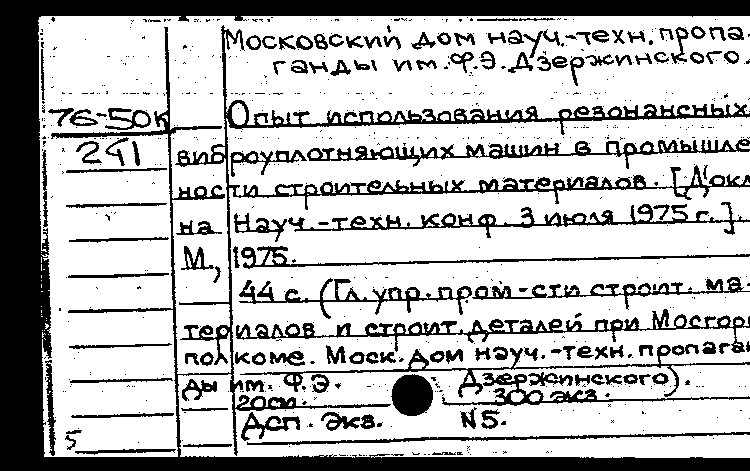 Московский дом науч.-техн. пропа-
ганды им. Ф.Э. Дзержинского.
76-50к
Опыт использования резонансных
241
виброуплотняющих машин в промышлен
ности строительных материалов. [Докл
на Науч.-техн. конф. 3 июля 1975 г.].
М., 1975.
44 с. (Гл. упр. пром-сти строит. ма-
териалов и строит. деталей при Мосгори
полкоме. Моск. дом науч.-техн. пропаган
ды им. Ф.Э. Дзержинского).
20см. 300 экз.
Дсп. Экз. N5.
5